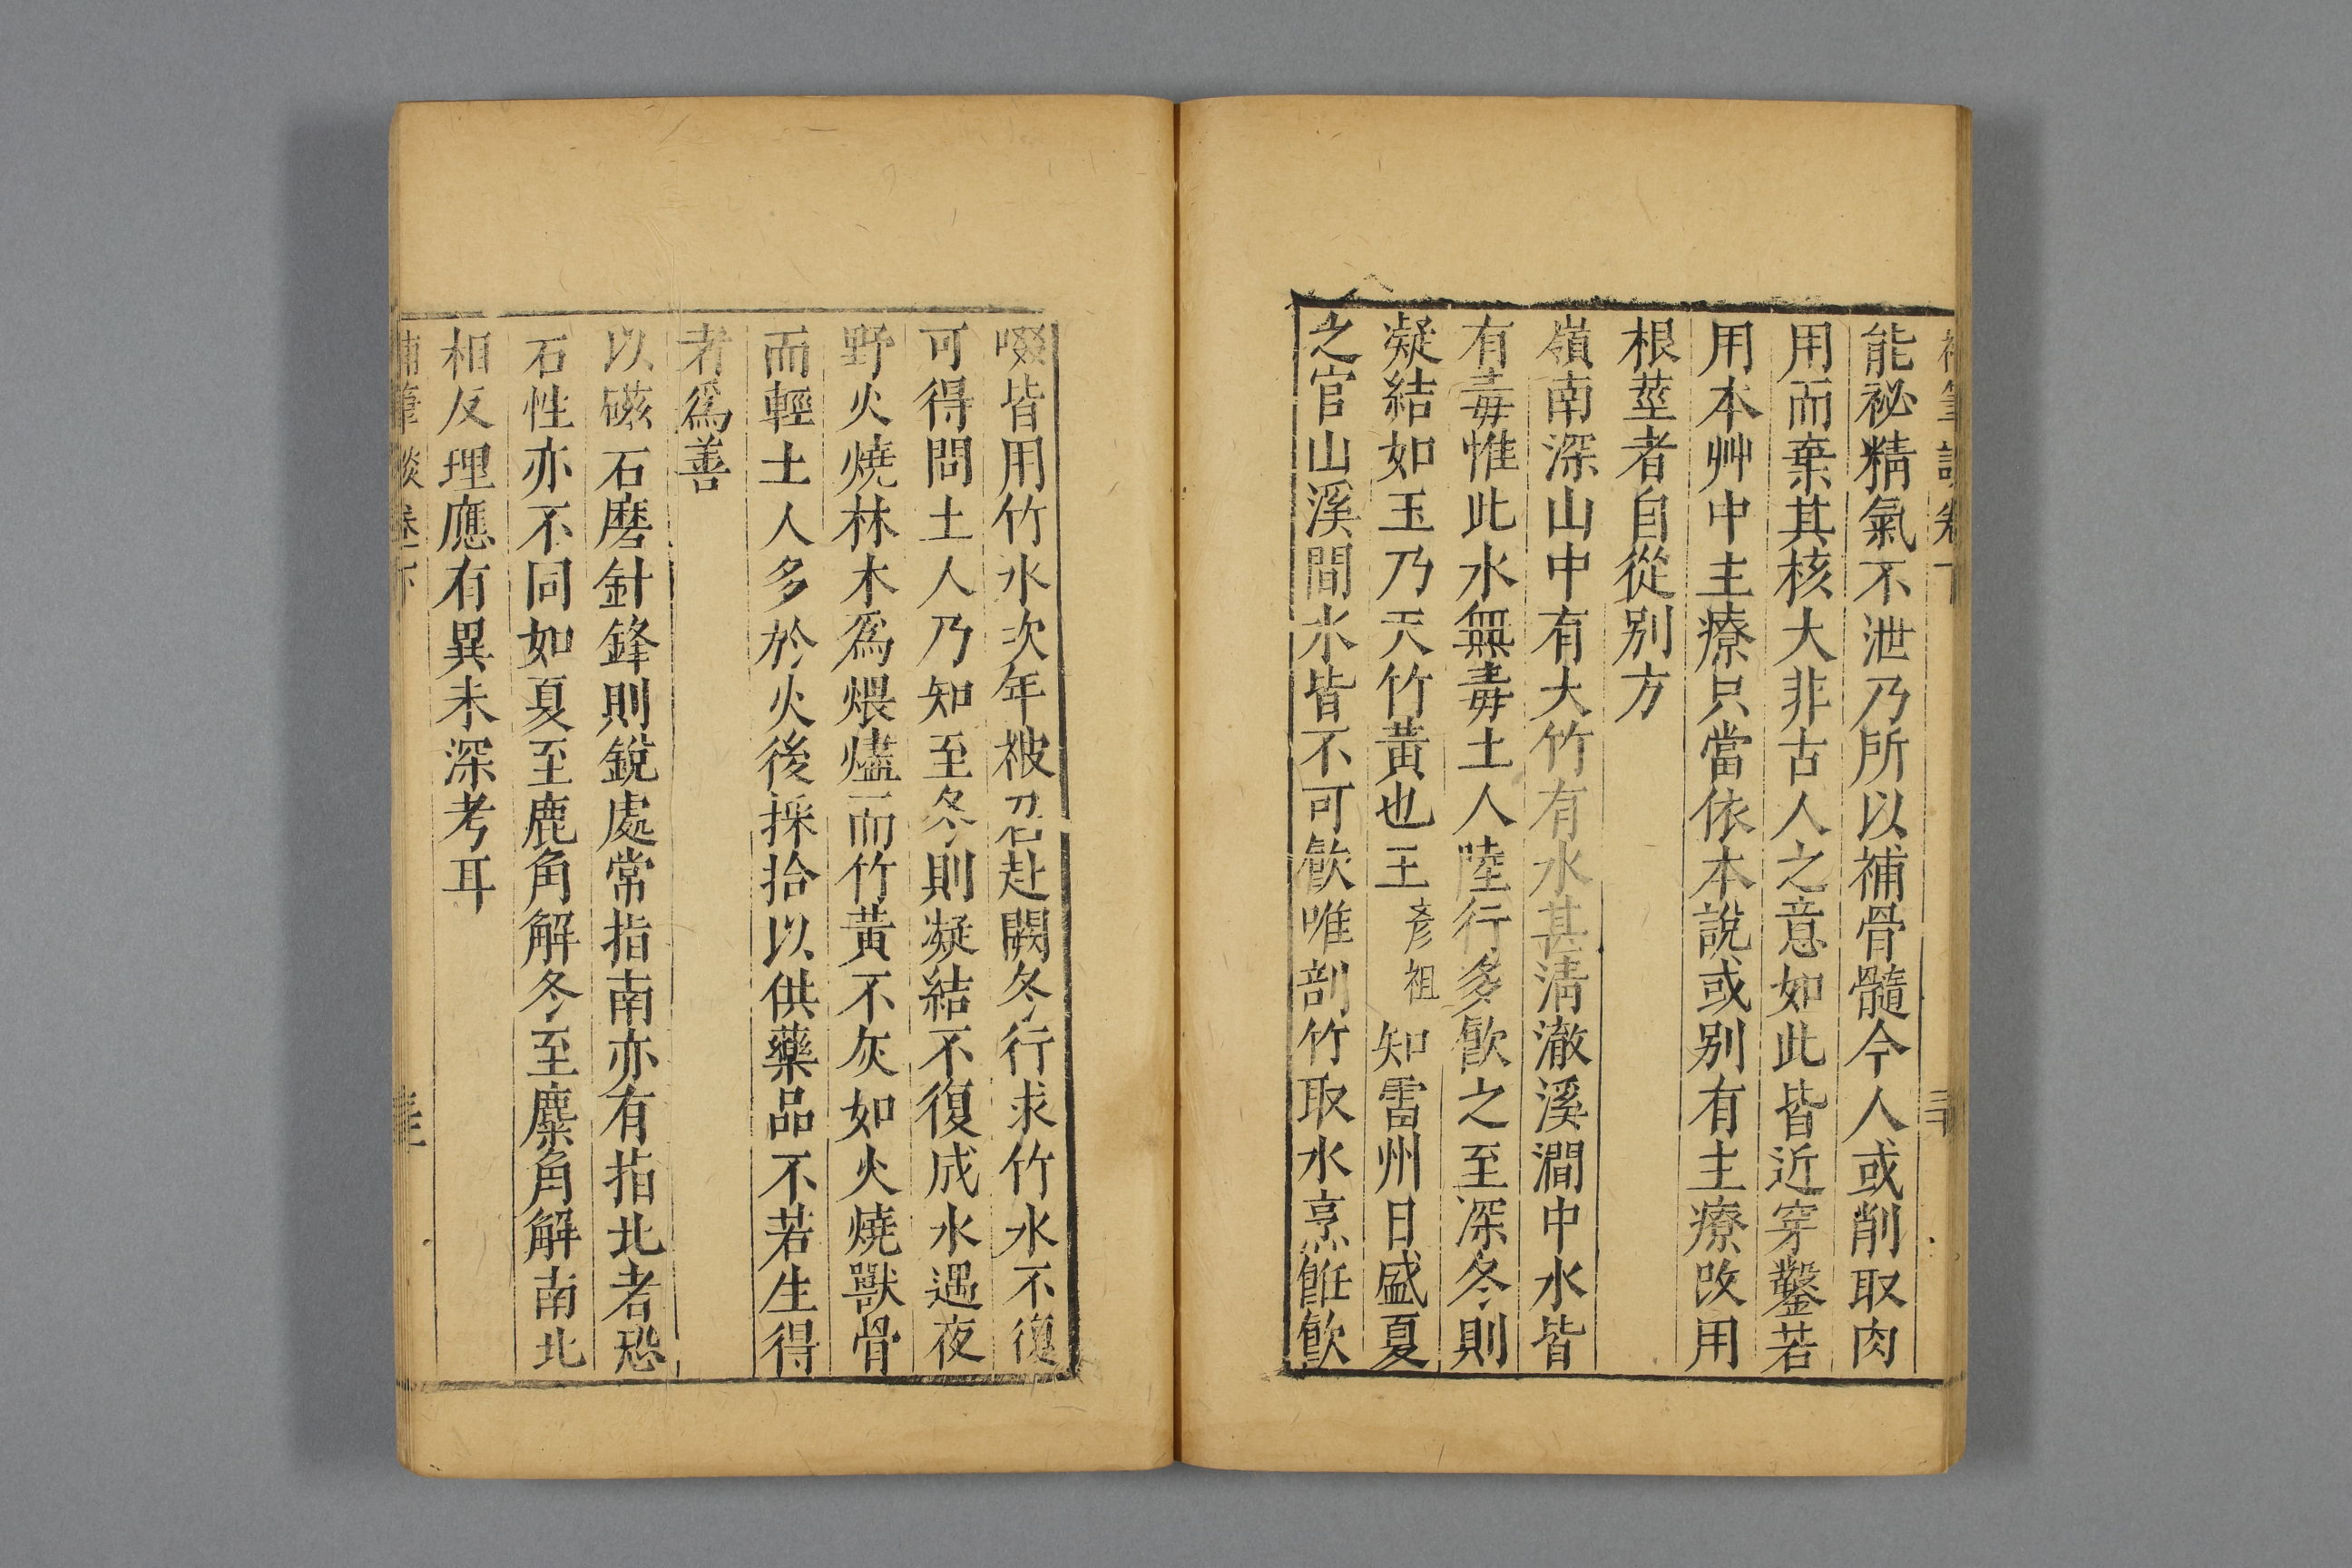 能祕精氣不泄乃所以補骨髓今人或削取肉
用而棄其核大非古人之意如此皆近穿鑿若
用本艸中主療只當依本說或别有主療改用
根莖者自從别方
嶺南深山中有大竹有水甚淸澈溪澗中水皆
有毒惟此水無毒土人陸行多飮之至深冬則
凝結如玉乃天竹黃也王彥祖知雷州日盛夏
之官山溪間水皆不可飮唯剖竹取水烹飪飮
啜皆用竹水次年被召赴闕冬行求竹水不復
可得問土人乃知至冬則凝結不復成水遇夜
野火燒林木爲煨燼而竹黃不灰如火燒獸骨
而輕土人多於火後採拾以供藥品不若生得
者爲善
以磁石磨針鋒則銳處常指南亦有指北者恐
石性亦不同如夏至鹿角解冬至麋角解南北
相反理應有異未深考耳
補筆談卷下